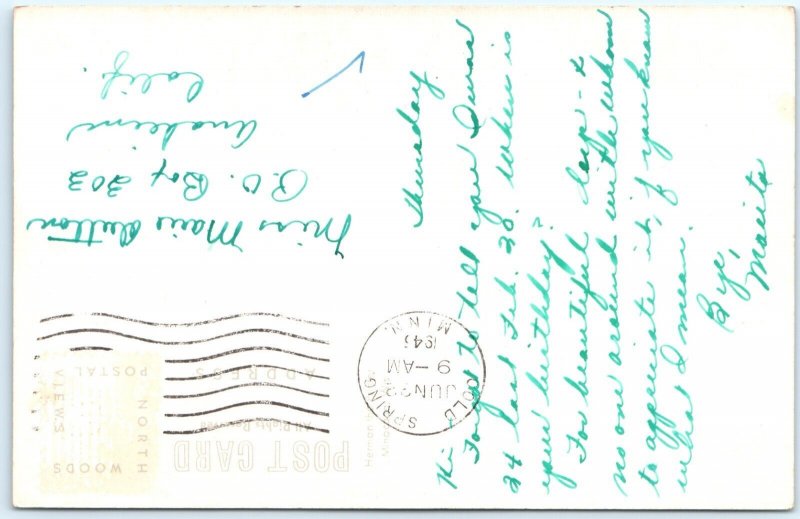 Thursday
Hi
Forgot to tell you I was
24 last Feb. 28. When is
your birthday?
Too beautiful here - &
no one around with whom
to appreciate it, if you know
what I mean.
Bye,
Marita
POST CARD
All Rights Reserved
ADDRESS
NORTH
WOODS
POSTAL
VIEWS
COLD SPRING
JUN 28
9 - AM
1945
MINN.
Miss Marie Dutton
P.O. Box 202
Anaheim
Calif.